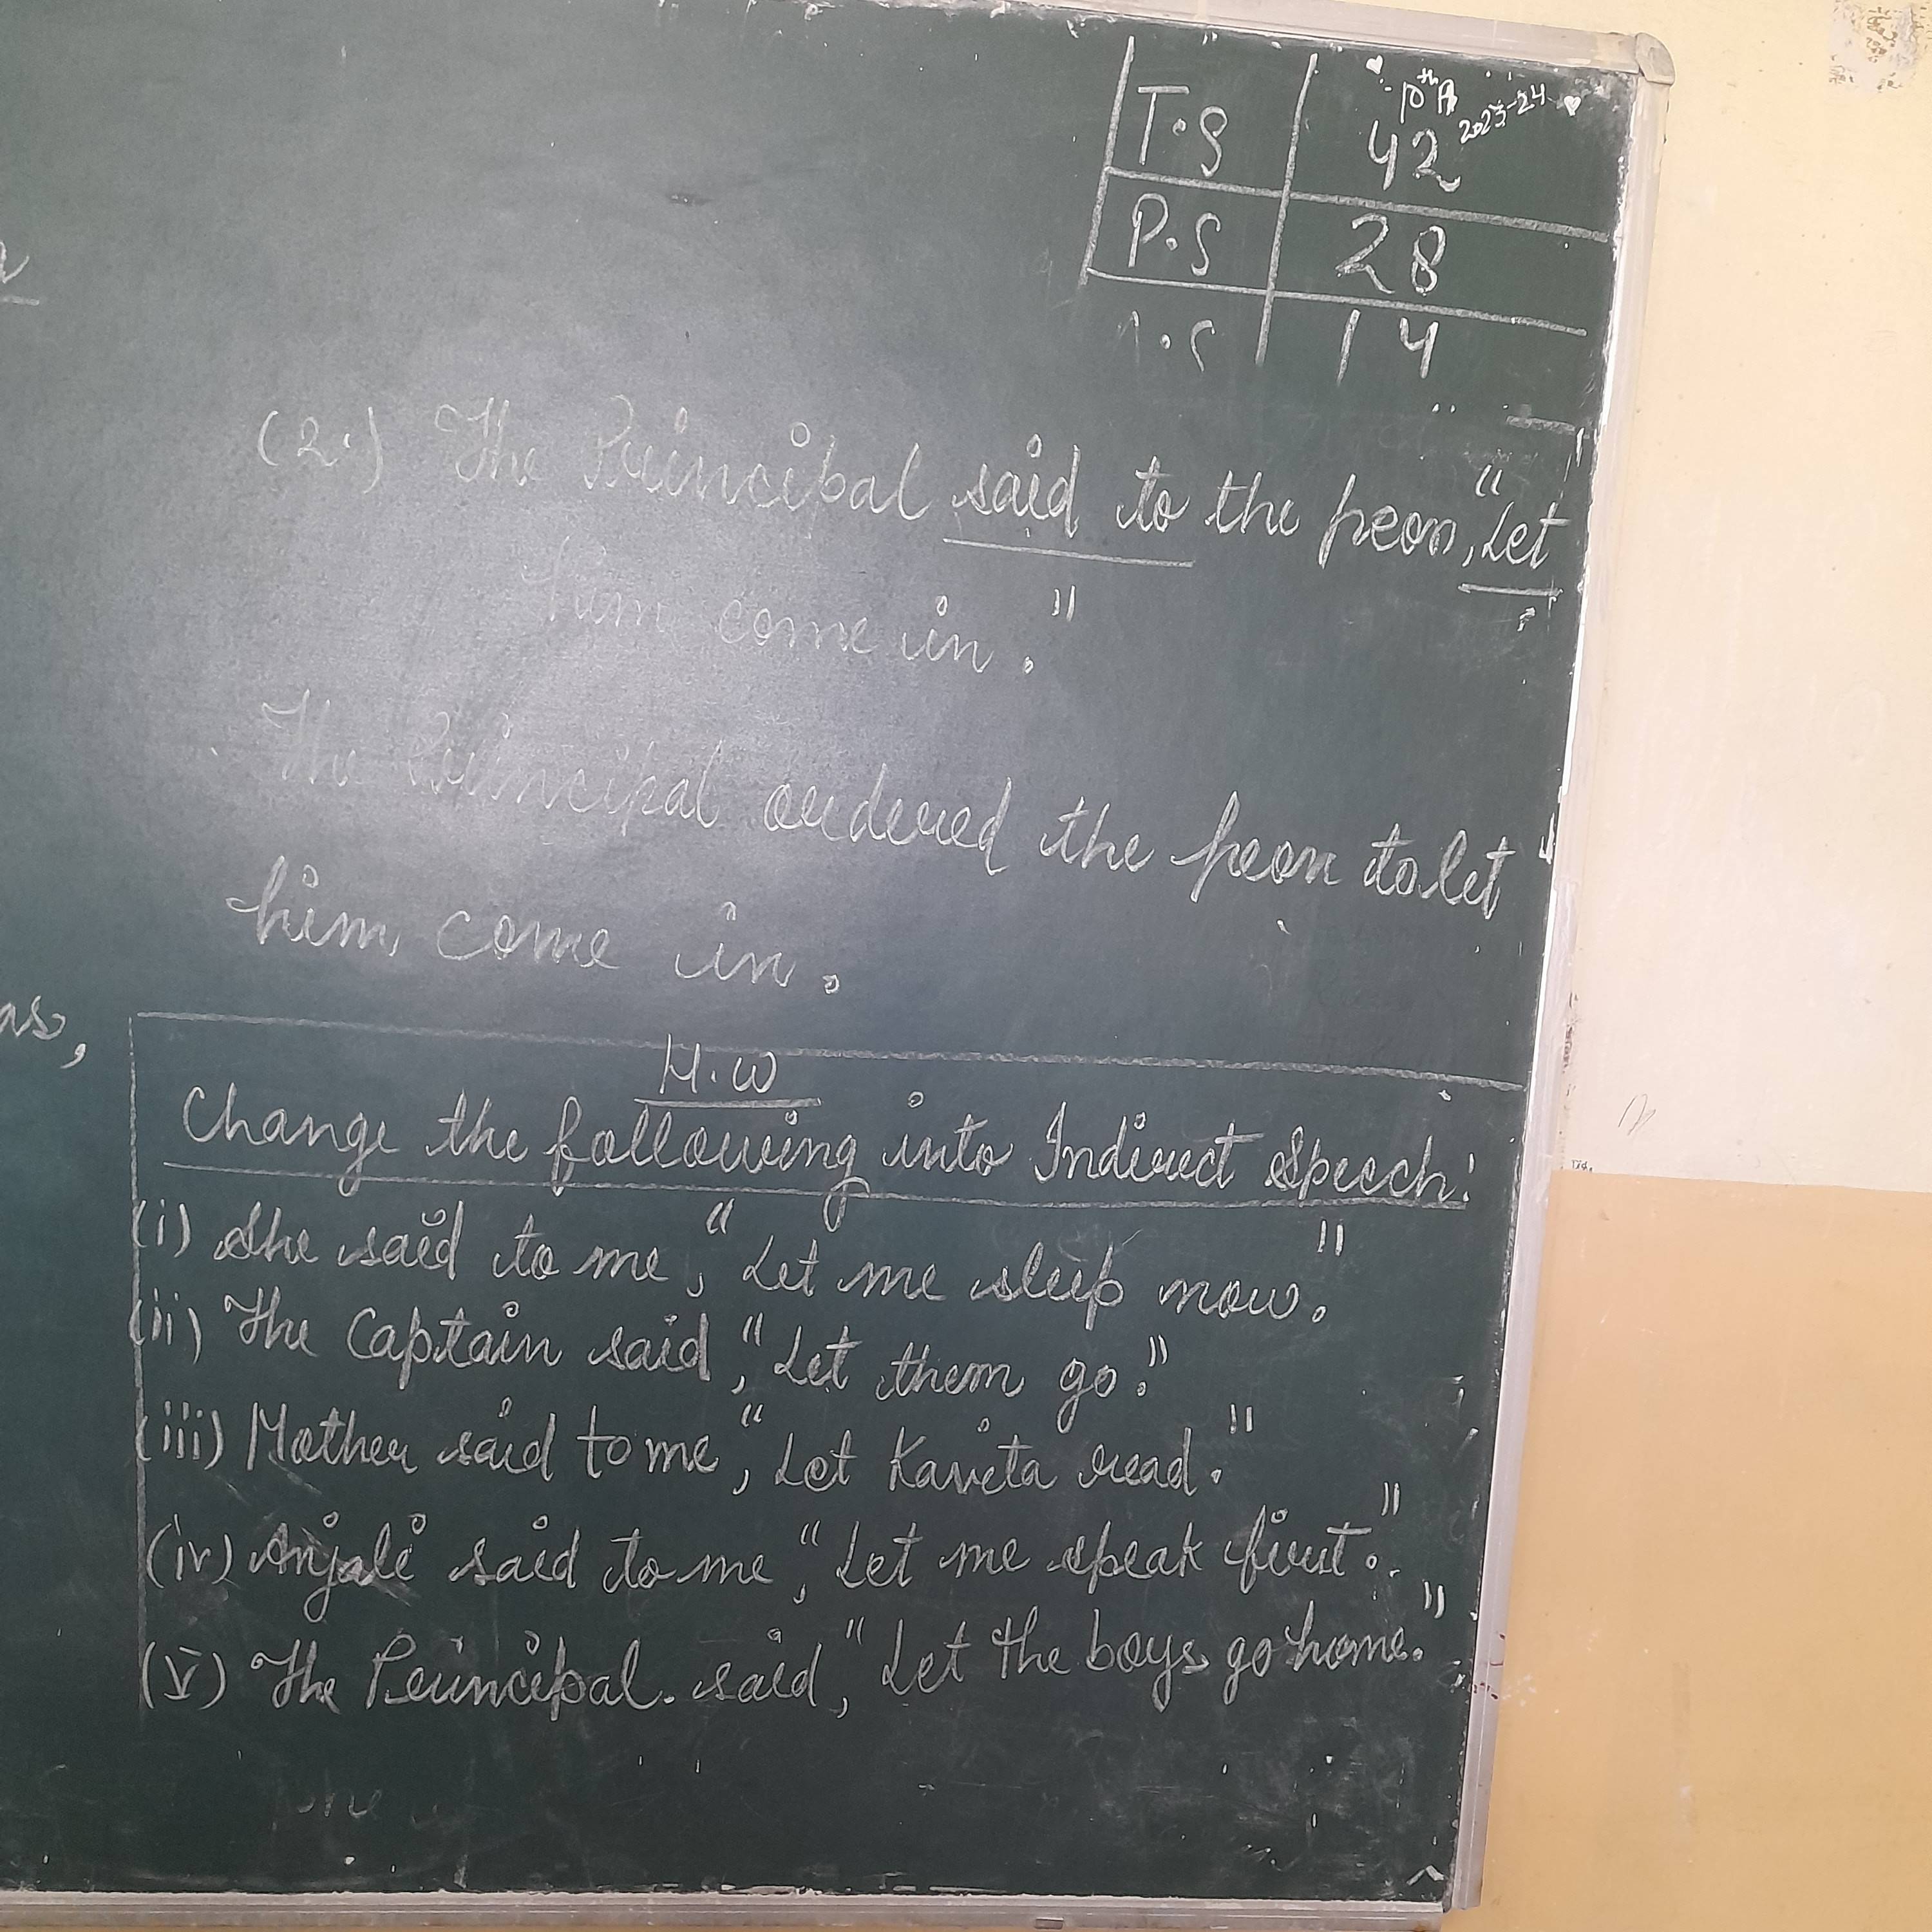 10th A
2023-24
T.S 42
P.S 28
A.S 14
(2.) The Principal said to the peon, "Let
him come in."
The Principal ordered the peon to let
him come in.
as,
H.W
Change the following into Indirect Speech:
(i) She said to me, "Let me sleep now."
(ii) The Captain said, "Let them go."
(iii) Mother said to me, "Let Kavita read."
(iv) Anjali said to me, "Let me speak first."
(V) The Principal. said, "Let the boys go home."